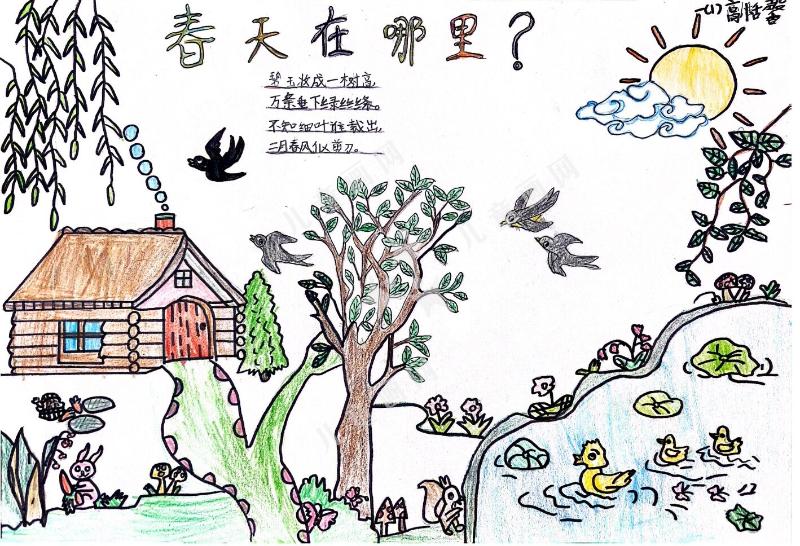 春天在哪里？
碧玉妆成一树高，
万条垂下绿丝绦。
不知细叶谁裁出，
二月春风似剪刀。
儿童画网